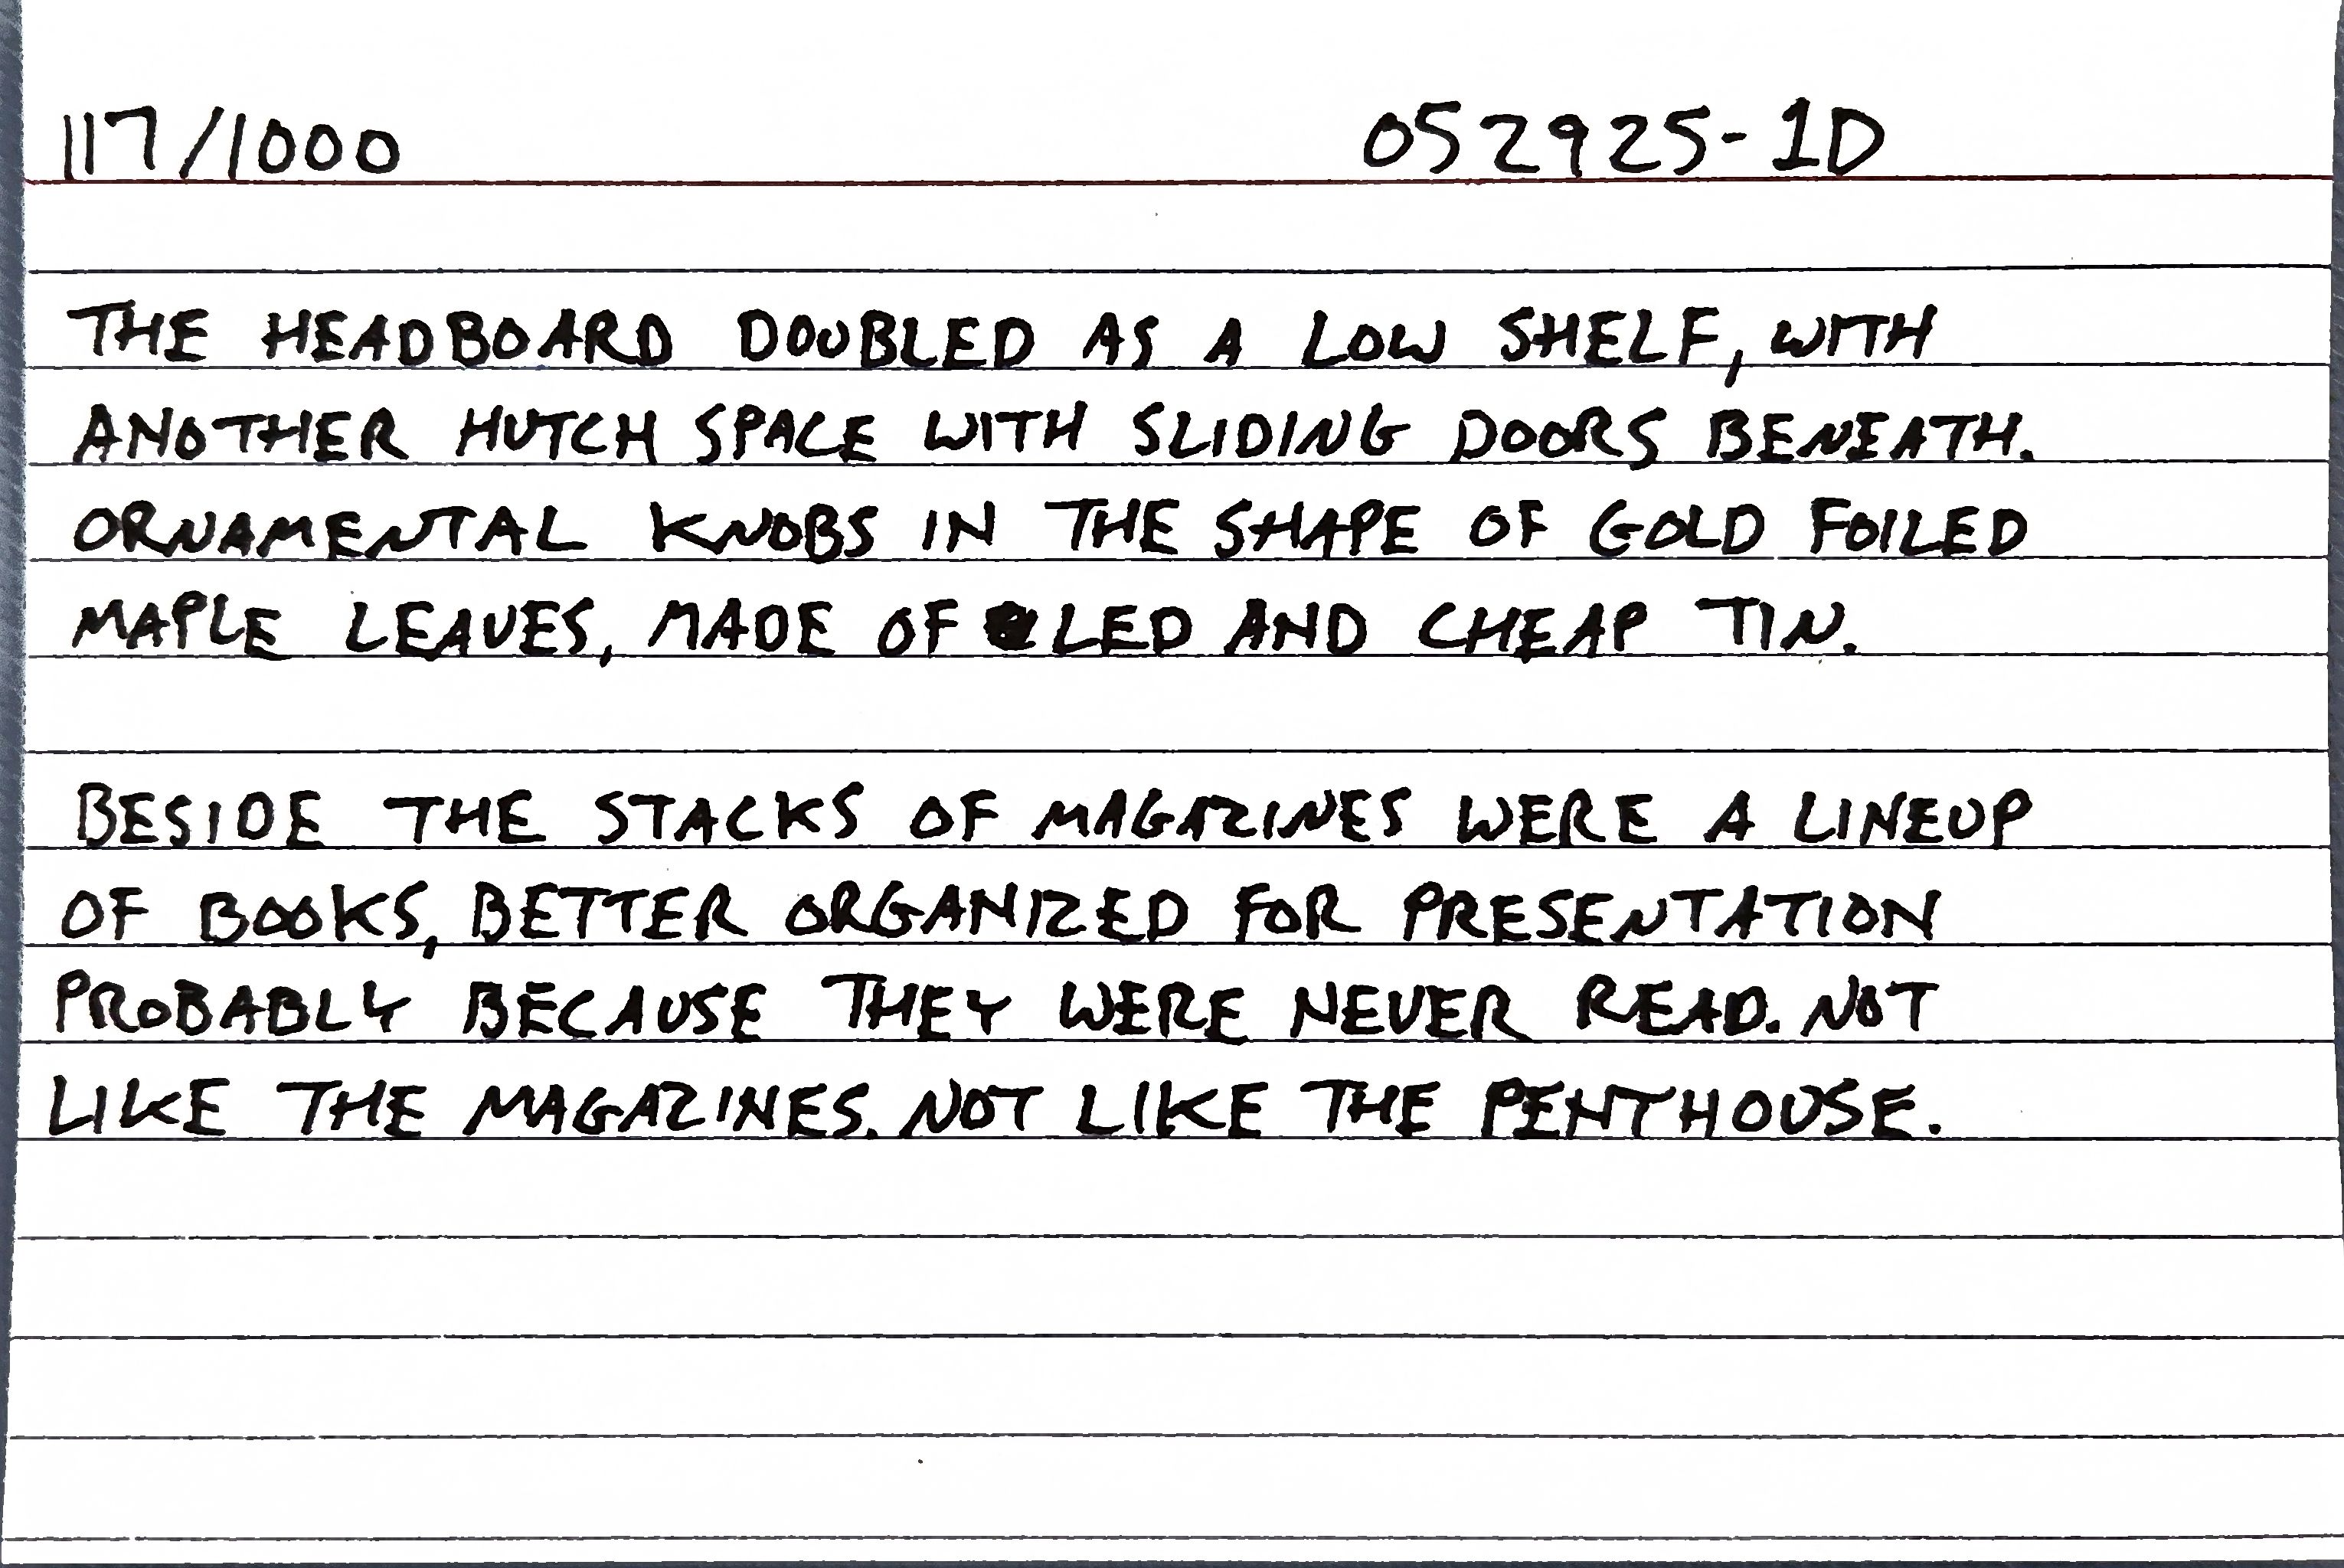 117/1000 052925-1D
THE HEADBOARD DOUBLED AS A LOW SHELF, WITH
ANOTHER HUTCH SPACE WITH SLIDING DOORS BENEATH.
ORNAMENTAL KNOBS IN THE SHAPE OF GOLD FOILED
MAPLE LEAVES, MADE OF LED AND CHEAP TIN.
BESIDE THE STACKS OF MAGAZINES WERE A LINEUP
OF BOOKS, BETTER ORGANIZED FOR PRESENTATION
PROBABLY BECAUSE THEY WERE NEVER READ. NOT
LIKE THE MAGAZINES. NOT LIKE THE PENTHOUSE.